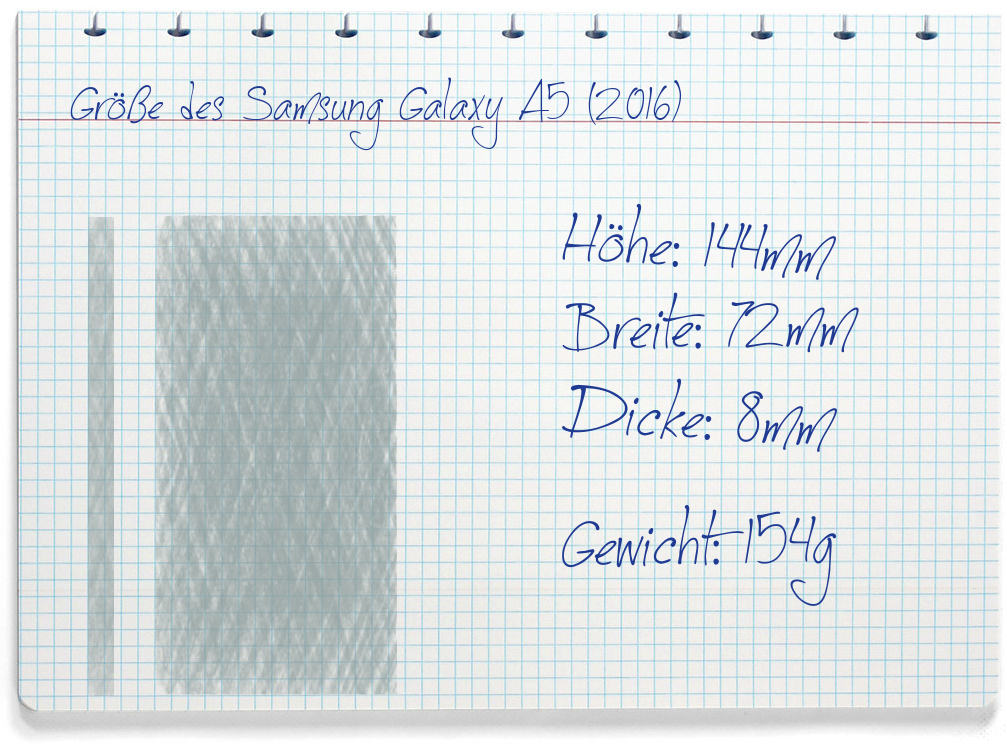 Größe des Samsung Galaxy A5 (2016)
Höhe: 144mm
Breite: 72mm
Dicke: 8mm
Gewicht: 154g